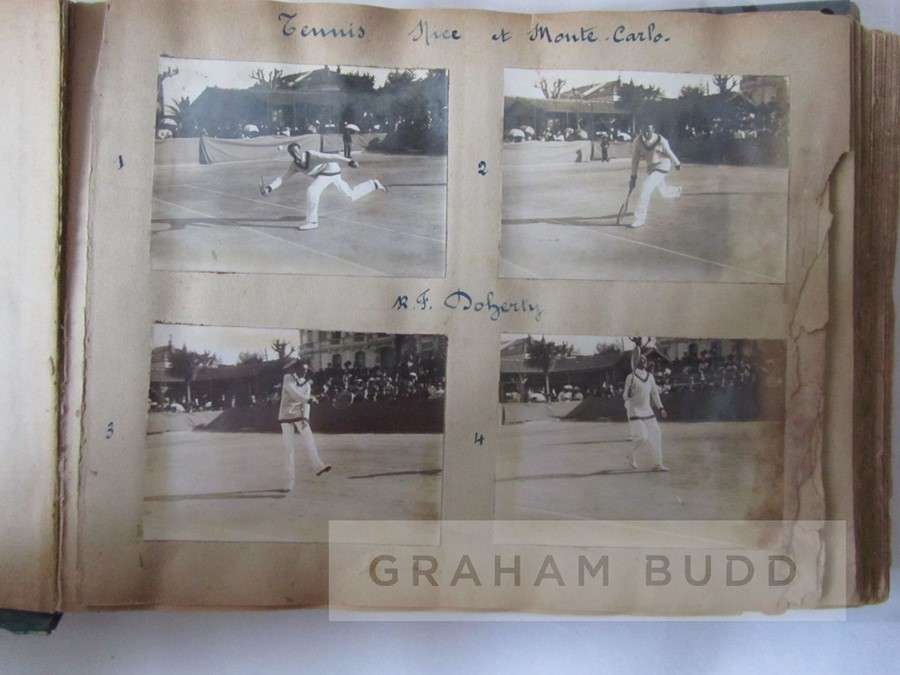 Tennis Nice et Monte-Carlo.
1
2
R.F. Doherty
3
4
GRAHAM BUDD